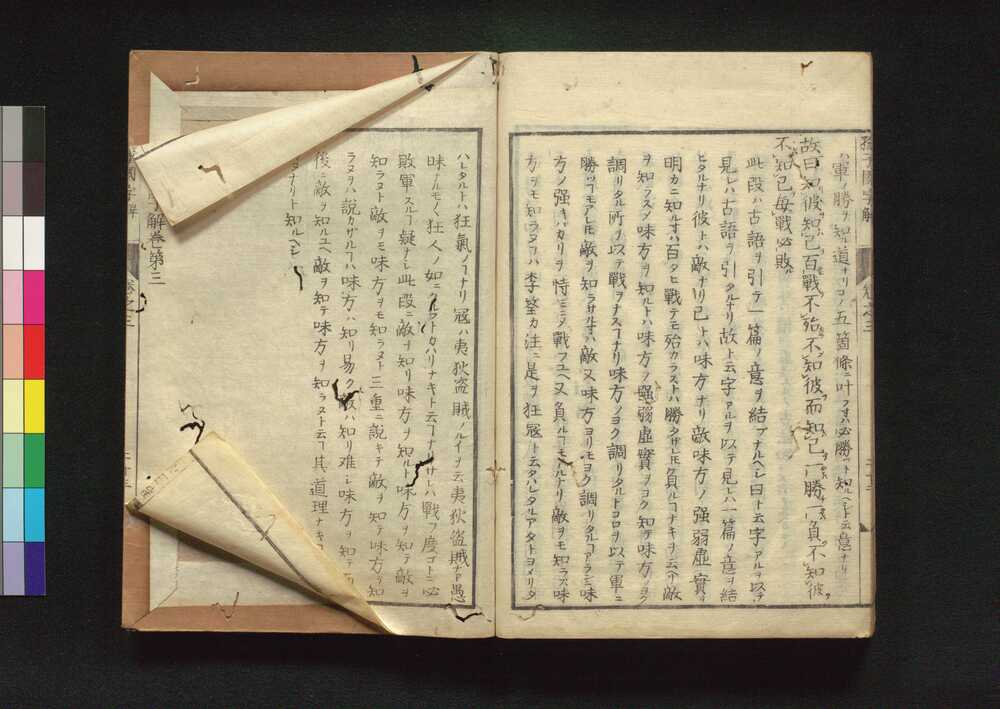 ハ軍ノ勝ヲ知ル道ナリコノ五箇條ニ叶フ寸ハ必勝ツト知ルヘシト云意ナリ
故曰知彼知己百戰不殆不知彼而知己一勝一負不知彼
不知己毎戰必敗
此段ハ古語ヲ引テ一篇ノ意ヲ結ブナルヘシ曰ト云字アルヲ以テ
見レハ古語ヲ引タルナリ故ト云字アルヲ以テ見レハ一篇ノ意ヲ結
ヒタルナリ彼トハ敵ナリ己トハ味方ナリ敵味方ノ強弱虚實ヲ
明カニ知ル寸ハ百タヒ戰テモ殆カラストハ勝タサレ𪜈負ルコナキヲ云ヘリ敵
ヲ知ラスメ味方ヲ知ルトハ味方ノ強弱虚實ヲヨク知テ味方ノヨク
調リタル所ヲ以テ戰ヲナスコナリ味方ノヨク調リタルトコロヲ以テ軍ニ
勝ツコモアレ𪜈敵ヲ知ラサル寸ハ敵又味方ヨリモヨク調リタルコアラシニ味
方ノ強キハカリヲ恃ミニメ戰フユヘ又負ルコモルトリ敵ヲモ知ラス味
方ヲモ知ラヌコハ李筌カ注ニ是ヲ狂寇ト云タハレタルアタトヨメリタ
ハレタルトハ狂氣ノコナリ寇ハ夷狄盗賊ノルイヲ云夷狄盗賊ナト愚
昧ナルモノヽ狂人ノ如ニ カハリナキト云コナリサレハ戰フ度コトニ必
敗軍スルコ疑ナシ此段ニ敵ヲ知リ味方ヲ知ルト味方ヲ知テ敵ヲ
知ラヌト敵ヲモ味方ヲモ知ラヌト三重ニ説キテ敵ヲ知テ味方ヲ知
ラヌヲハ説カサルコハ味方ハ知リ易ク敵ハ知リ难シ味方ヲ知テ
後ニ敵ヲ知ルユヘ敵ヲ知テ味方ヲ知ラヌト云コ其道理ナキ
ナリト知ルヘシ
解卷第三